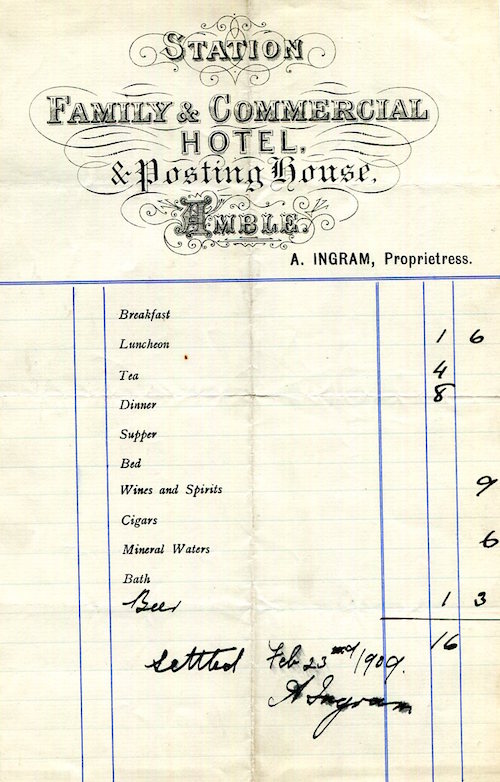 STATION
FAMILY & COMMERCIAL
HOTEL,
& Posting House,
AMBLE.
A. INGRAM, Proprietress.
Breakfast
Luncheon 1 6
Tea 4
Dinner 8
Supper
Bed
Wines and Spirits 9
Cigars
Mineral Waters 6
Bath
Beer 1 3
16
Settled Feb 23nd/1909.
A Ingram